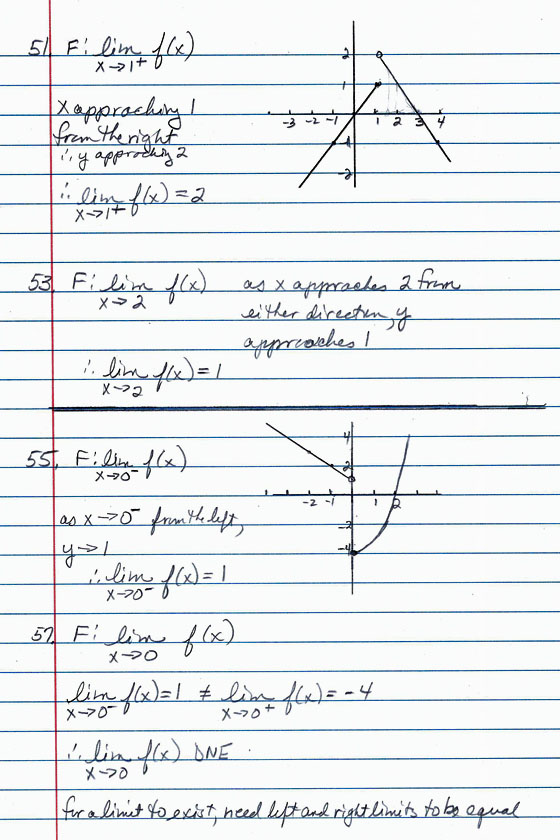 51. F: lim f(x)
x→1⁺
x approaching 1
from the right
∴ y approaching 2
∴ lim f(x) = 2
x→1⁺
2
1
-3 -2 -1 1 2 3 4
-1
-2
53. F: lim f(x) as x approaches 2 from
x→2 either direction, y
approaches 1
∴ lim f(x) = 1
x→2
55. F: lim f(x)
x→0⁻
as x→0⁻ from the left,
y→1
∴ lim f(x) = 1
x→0⁻
4
2
-2 -1 1 2
-2
-4
57. F: lim f(x)
x→0
lim f(x) = 1 ≠ lim f(x) = -4
x→0⁻ x→0⁺
∴ lim f(x) DNE
x→0
for a limit to exist, need left and right limits to be equal